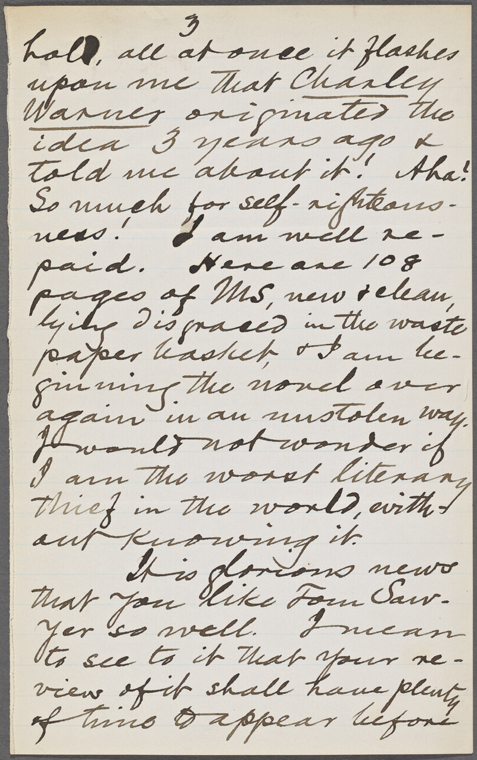 3
hold, all at once it flashes
upon me that Charley
Warner originated the
idea 3 years ago &
told me about it! Aha!
So much for self-righteous-
ness! I am well re-
paid. Here are 108
pages of MS, new & clean,
lying disgraced in the waste
paper basket, & I am be-
ginning the novel over
again in an unstolen way.
I would not wonder if
I am the worst literary
thief in the world, with-
out knowing it.
It is glorious news
that you like Tom Saw-
yer so well. I mean
to see to it that your re-
view of it shall have plenty
of time to appear before